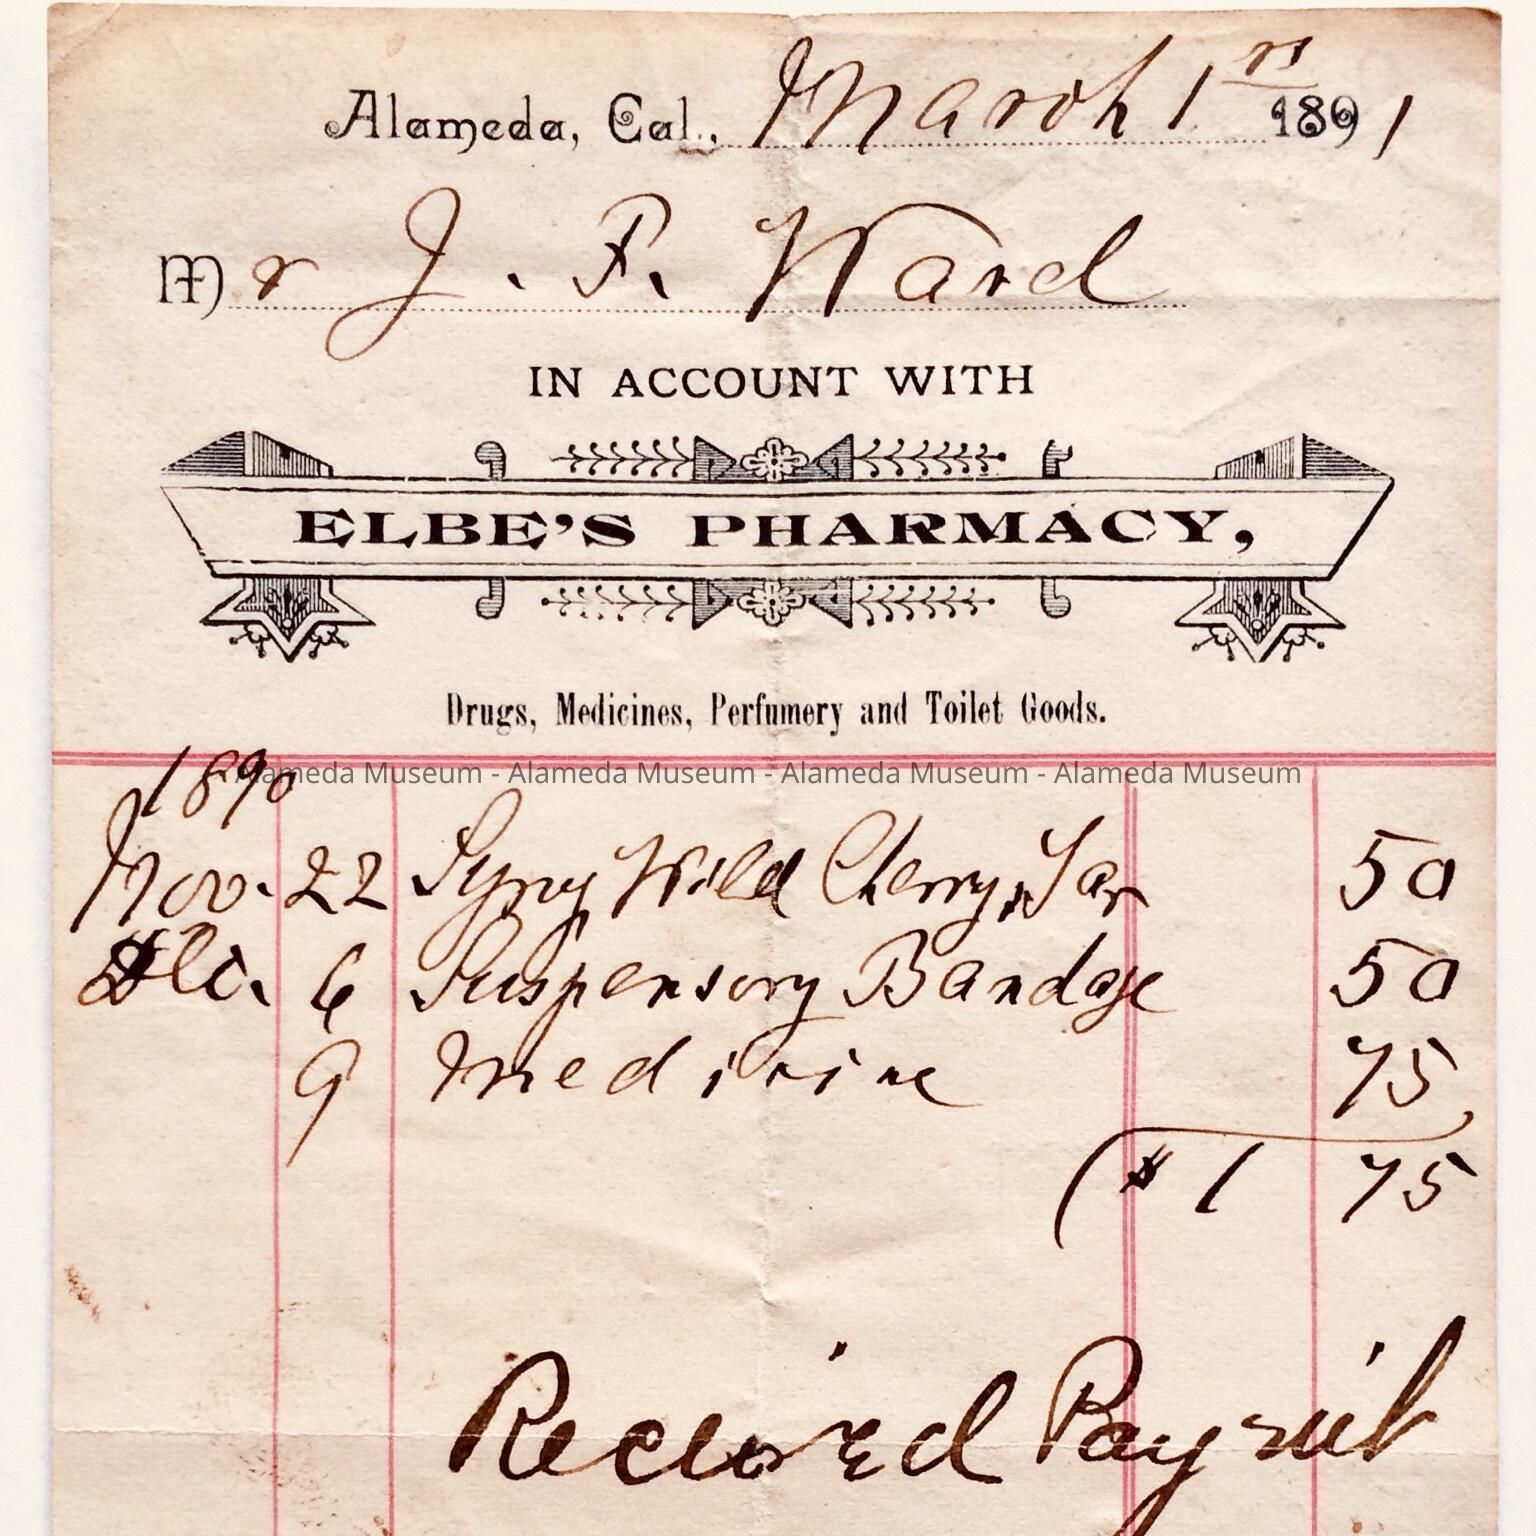 Alameda, Cal., March 1rs 1891
Mr J. F. Ward
IN ACCOUNT WITH
ELBE'S PHARMACY,
Drugs, Medicines, Perfumery and Toilet Goods.
Alameda Museum - Alameda Museum - Alameda Museum - Alameda Museum
1890
Nov. 22 Syrup Wild Cherry, Tar 50
Dec. 6 Suspensory Bandage 50
9 Medicine 75
$ 1 75
Received Payment